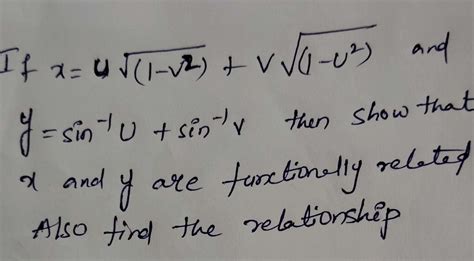 If x = u√(1-v²) + v√(1-u²) and
y = sin⁻¹u + sin⁻¹v then show that
x and y are functionally related
Also find the relationship